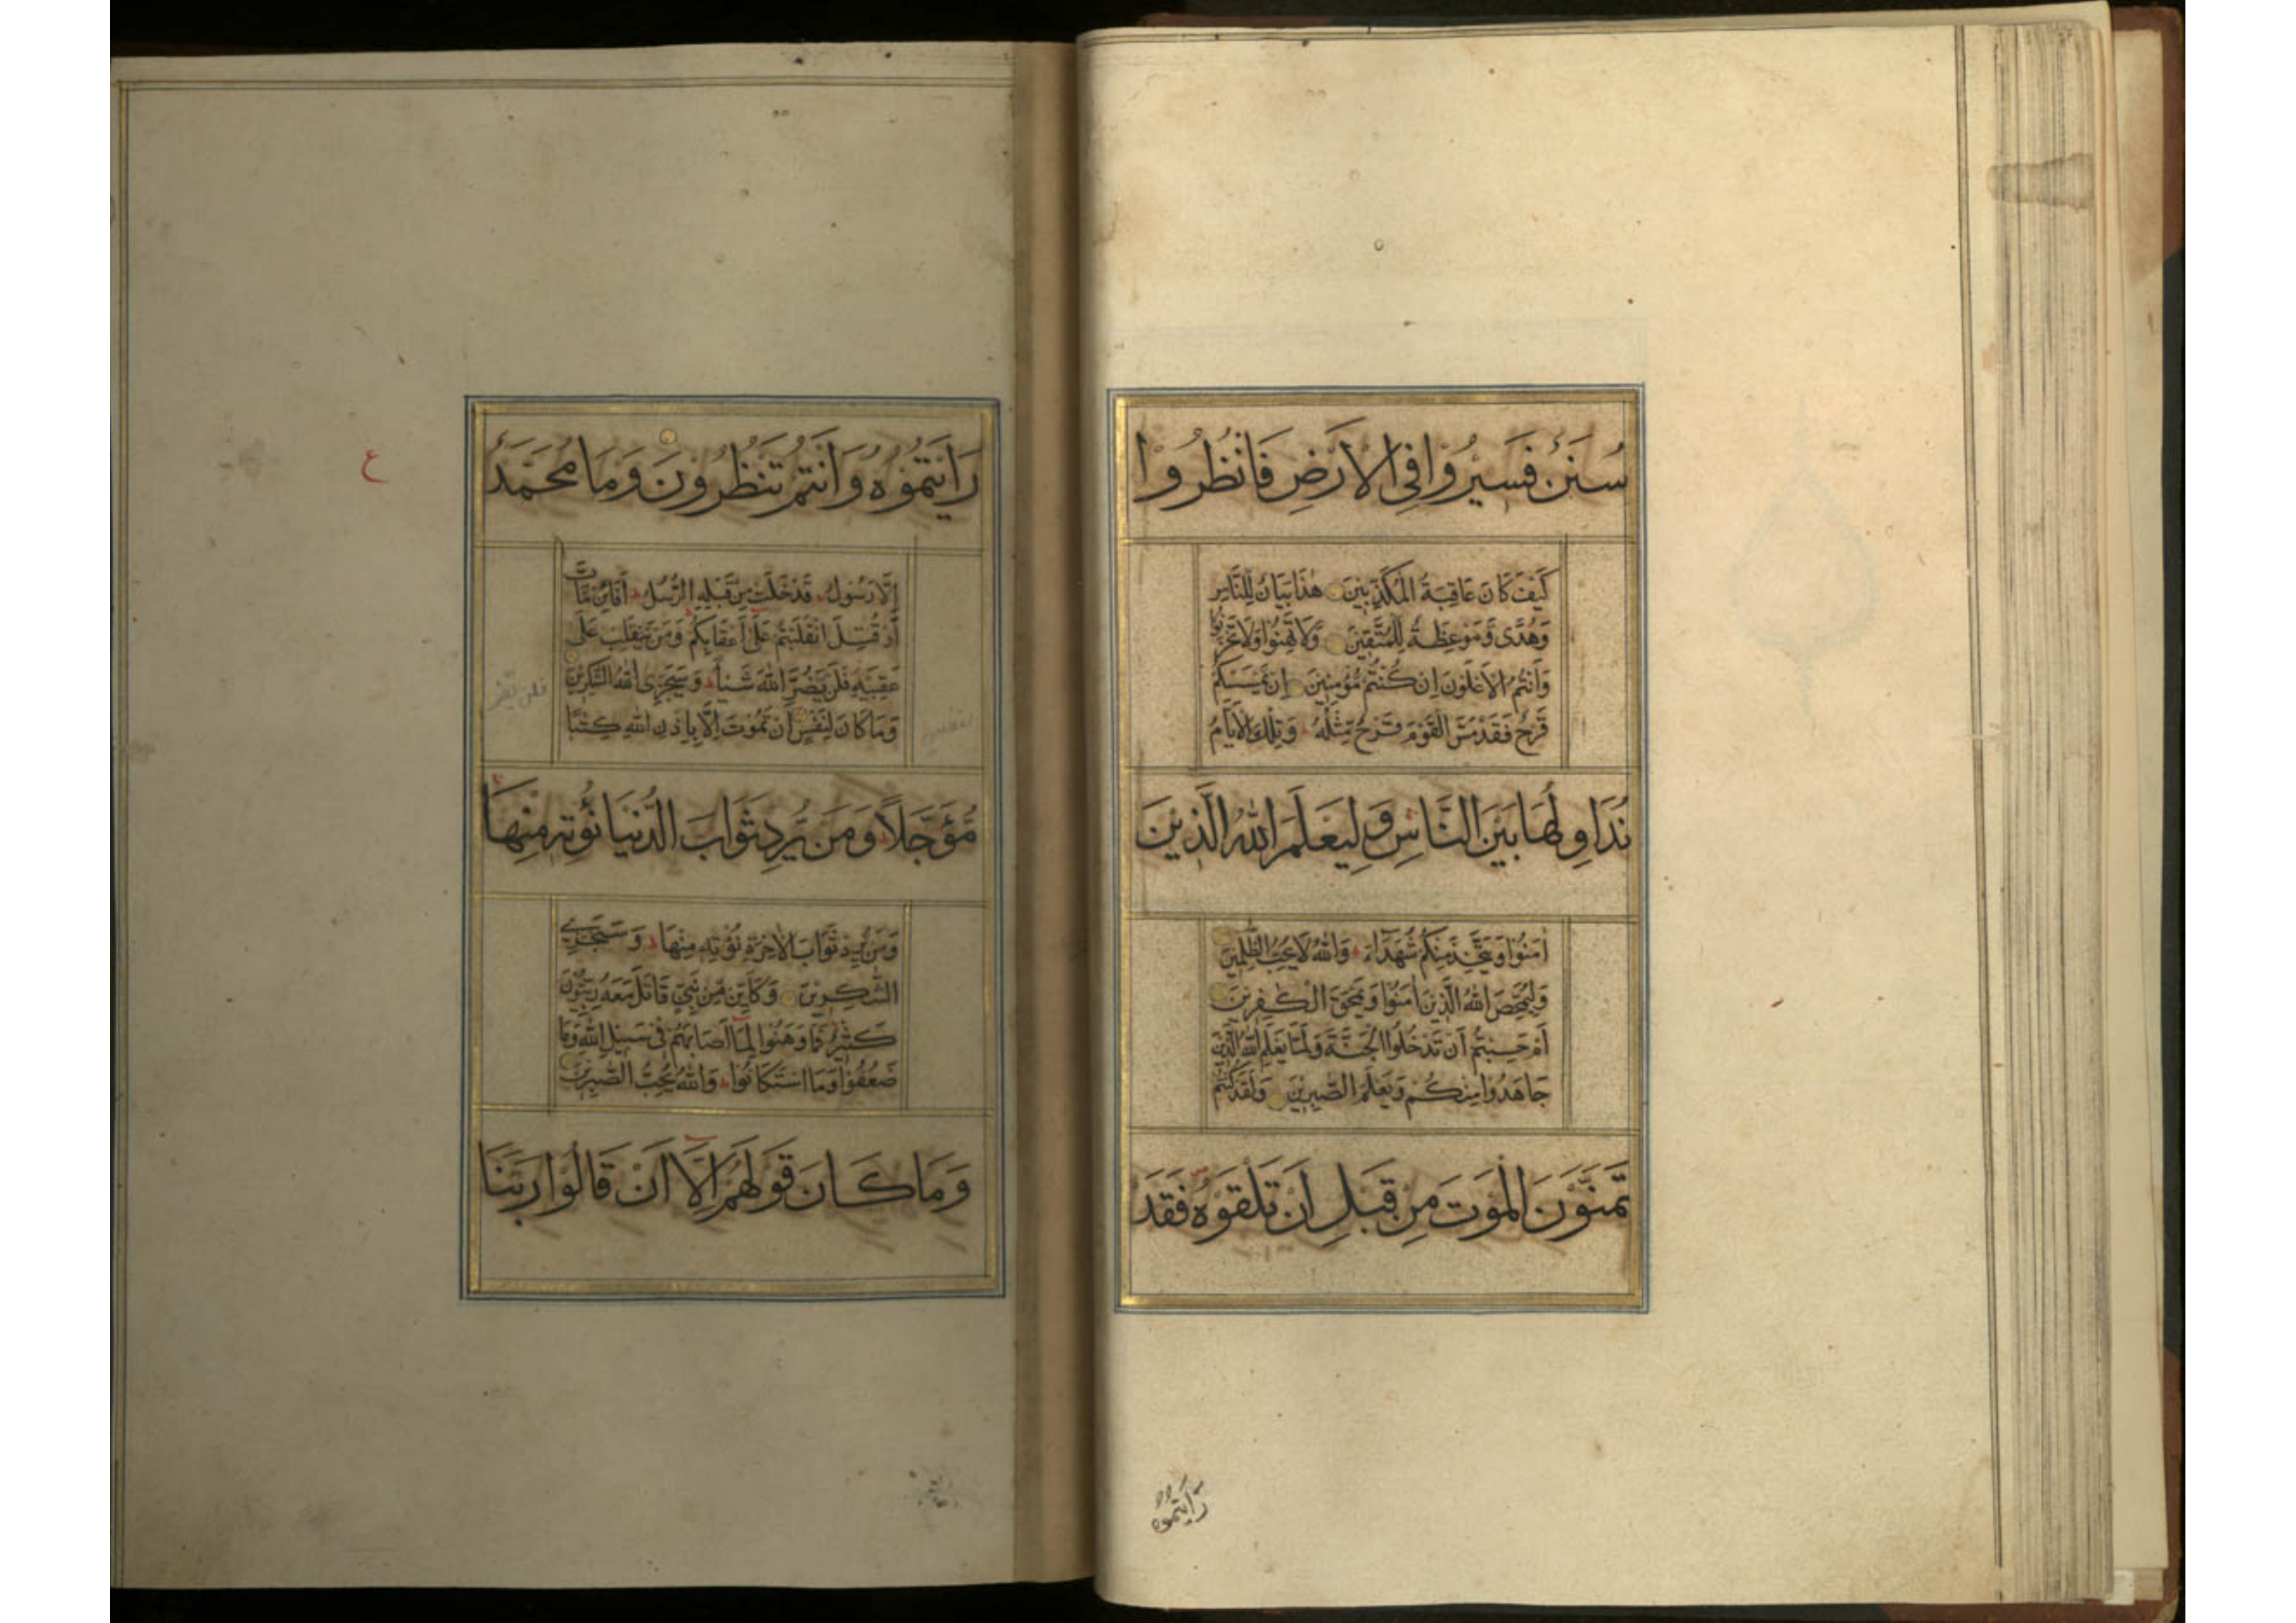 سُنَنٌ فَسِيْرُوْا فِى الْاَرْضِ فَانْظُرُوْا
كَيْفَ كَانَ عَاقِبَةُ الْمُكَذِّبِيْنَ هٰذَا بَيَانٌ لِّلنَّاسِ
وَهُدًى وَّمَوْعِظَةٌ لِّلْمُتَّقِيْنَ وَلَا تَهِنُوْا وَلَا تَحْزَنُوْا
وَاَنْتُمُ الْاَعْلَوْنَ اِنْ كُنْتُمْ مُّؤْمِنِيْنَ اِنْ يَّمْسَسْكُمْ
قَرْحٌ فَقَدْ مَسَّ الْقَوْمَ قَرْحٌ مِّثْلُهٗ وَتِلْكَ الْاَيَّامُ
نُدَاوِلُهَا بَيْنَ النَّاسِ وَلِيَعْلَمَ اللّٰهُ الَّذِيْنَ
اٰمَنُوْا وَيَتَّخِذَ مِنْكُمْ شُهَدَآءَ وَاللّٰهُ لَا يُحِبُّ الظّٰلِمِيْنَ
وَلِيُمَحِّصَ اللّٰهُ الَّذِيْنَ اٰمَنُوْا وَيَمْحَقَ الْكٰفِرِيْنَ
اَمْ حَسِبْتُمْ اَنْ تَدْخُلُوا الْجَنَّةَ وَلَمَّا يَعْلَمِ اللّٰهُ الَّذِيْنَ
جَاهَدُوْا مِنْكُمْ وَيَعْلَمَ الصّٰبِرِيْنَ وَلَقَدْ كُنْتُمْ
تَمَنَّوْنَ الْمَوْتَ مِنْ قَبْلِ اَنْ تَلْقَوْهُ فَقَدْ
رَاَيْتُمُوْهُ
رَاَيْتُمُوْهُ وَاَنْتُمْ تَنْظُرُوْنَ وَمَا مُحَمَّدٌ
اِلَّا رَسُوْلٌ قَدْ خَلَتْ مِنْ قَبْلِهِ الرُّسُلُ اَفَائِنْ مَّاتَ
اَوْ قُتِلَ انْقَلَبْتُمْ عَلٰى اَعْقَابِكُمْ وَمَنْ يَّنْقَلِبْ عَلٰى
عَقِبَيْهِ فَلَنْ يَّضُرَّ اللّٰهَ شَيْئًا وَسَيَجْزِى اللّٰهُ الشّٰكِرِيْنَ
وَمَا كَانَ لِنَفْسٍ اَنْ تَمُوْتَ اِلَّا بِاِذْنِ اللّٰهِ كِتٰبًا
مُّؤَجَّلًا وَمَنْ يُّرِدْ ثَوَابَ الدُّنْيَا نُؤْتِهٖ مِنْهَا
وَمَنْ يُّرِدْ ثَوَابَ الْاٰخِرَةِ نُؤْتِهٖ مِنْهَا وَسَنَجْزِى
الشّٰكِرِيْنَ وَكَاَيِّنْ مِّنْ نَّبِيٍّ قَاتَلَ مَعَهٗ رِبِّيُّوْنَ
كَثِيْرٌ فَمَا وَهَنُوْا لِمَآ اَصَابَهُمْ فِى سَبِيْلِ اللّٰهِ وَمَا
ضَعُفُوْا وَمَا اسْتَكَانُوْا وَاللّٰهُ يُحِبُّ الصّٰبِرِيْنَ
وَمَا كَانَ قَوْلَهُمْ اِلَّآ اَنْ قَالُوْا رَبَّنَا
ع
فلن يضر